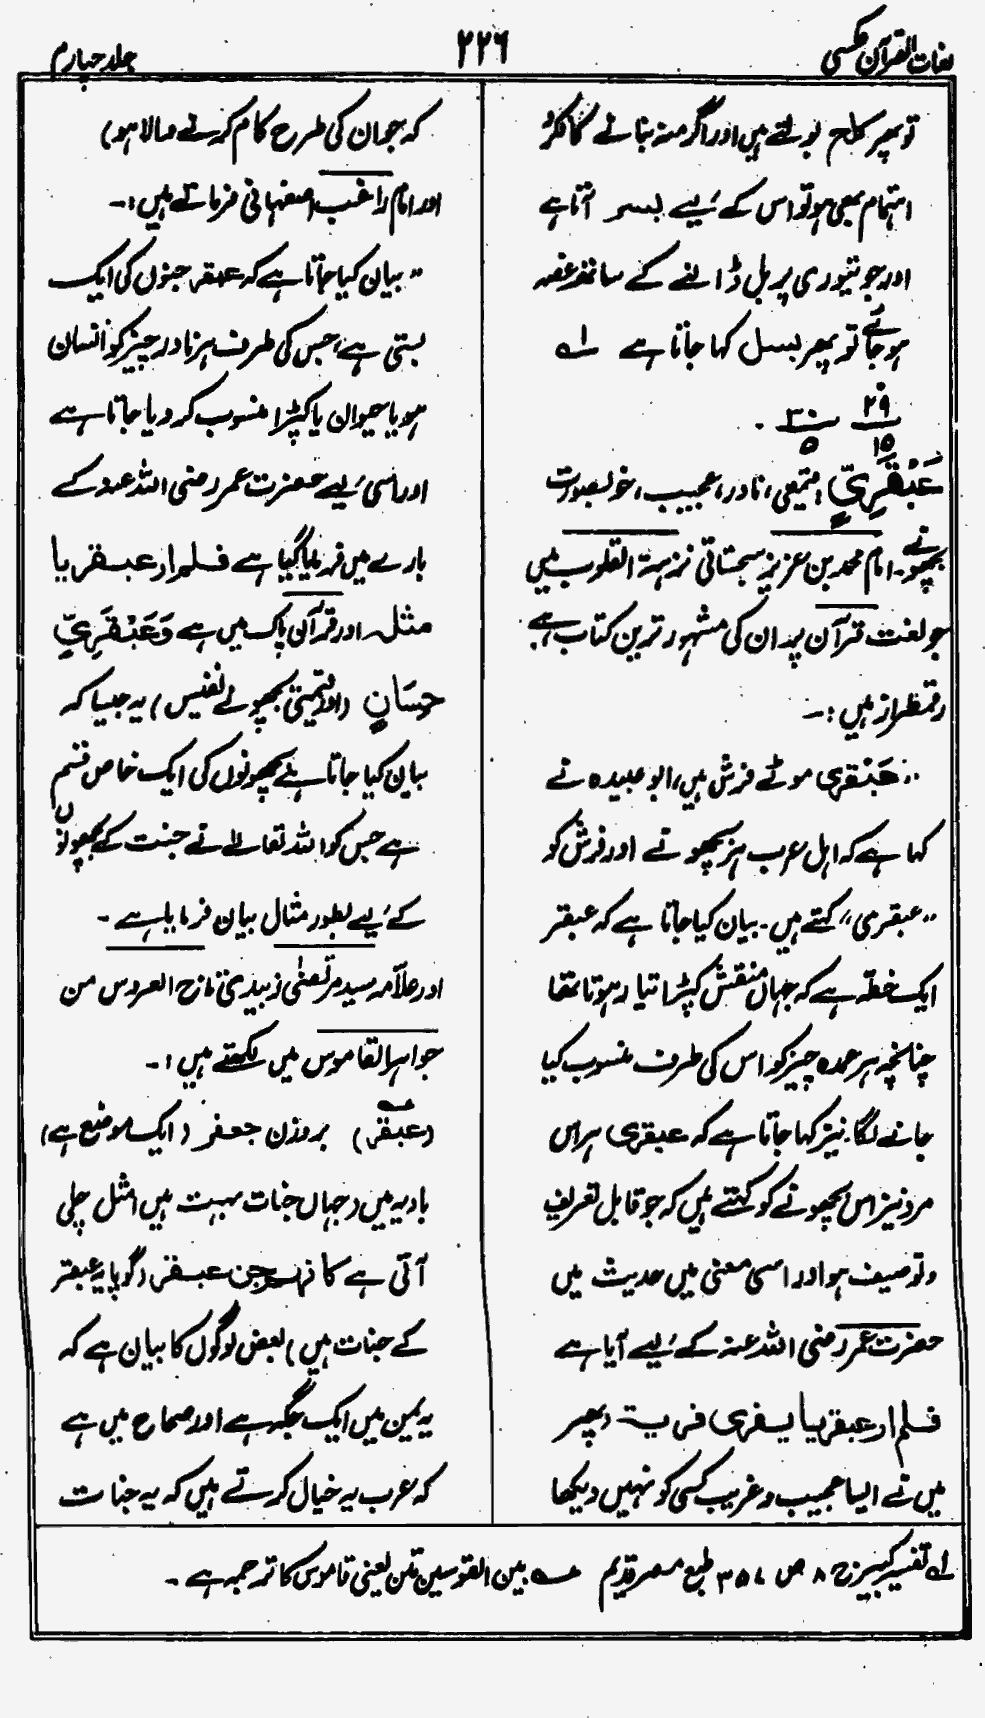 لغات القرآن عکسی
۲۲۶
جلد چہارم
تو پھر کلح بولتے ہیں اور اگر منہ بنانے کا فکر و
اہتمام بھی ہو تو اس کے لیے بسر آتا ہے
اور جو تیوری پر بل ڈالنے کے ساتھ غصہ
ہو جائے تو پھر بسل کہا جاتا ہے لہ
۲۹ ۳۰
۱۵ ۵ ۔
عَبْقَرِيٍّ قیمتی، نادر، عجیب، خوبصورت
بچھونے۔ امام محمد بن عزیز سجستانی نزہۃ القلوب میں
جو لغت قرآن پر ان کی مشہور ترین کتاب ہے
رقمطراز ہیں :۔
"عَبْقَری موٹے فرش ہیں، ابو عبیدہ نے
کہا ہے کہ اہل عرب ہر بچھونے اور فرش کو
"عبقری" کہتے ہیں۔ بیان کیا جاتا ہے کہ عبقر
ایک خطہ ہے کہ جہاں منقش کپڑا تیار ہوتا تھا
چنانچہ ہر عمدہ چیز کو اس کی طرف منسوب کیا
جانے لگا۔ نیز کہا جاتا ہے کہ عبقری ہر اس
مرد نیز اس بچھونے کو کہتے ہیں کہ جو قابل تعریف
و توصیف ہو اور اسی معنی میں حدیث میں
حضرت عمر رضی اللہ عنہ کے لیے آیا ہے
فلم ار عبقریا یفری فریہ (پھر
میں نے ایسا عجیب و غریب کسی کو نہیں دیکھا
کہ جو ان کی طرح کام کرنے والا ہو)
اور امام راغب اصفہانی فرماتے ہیں :۔
"بیان کیا جاتا ہے کہ عبقر جنوں کی ایک
بستی ہے، جس کی طرف ہر نادر چیز کو انسان
ہو یا حیوان یا کپڑا منسوب کر دیا جاتا ہے
اور اسی لیے حضرت عمر رضی اللہ عنہ کے
بارے میں فرمایا گیا ہے فلم ار عبقریا
مثلہ اور قرآن پاک میں ہے وَعَبْقَرِيٍّ
حِسَانٍ (اور قیمتی بچھونے نفیس) یہ جیسا کہ
بیان کیا جاتا ہے بچھونوں کی ایک خاص قسم
ہے جس کو اللہ تعالےٰ نے جنت کے بچھونوں
کے لیے بطور مثال بیان فرمایا ہے۔
اور علامہ سید مرتضیٰ زبیدی تاج العروس من
جواہر القاموس میں لکھتے ہیں :۔
(عبقر) بروزن جعفر (ایک موضع ہے)
بادیہ میں (جہاں جنات بہت ہیں) مثل چلی
آتی ہے کانہم جن عبقر (گویا یہ عبقر
کے جنات ہیں) بعض لوگوں کا بیان ہے کہ
یہ یمن میں ایک جگہ ہے اور صحاح میں ہے
کہ عرب یہ خیال کرتے ہیں کہ یہ جنات
لہ تفسیر کبیر ج ۸ ص ۳۵۷ طبع مصر قدیم بین القوسین متن یعنی قاموس کا ترجمہ ہے۔